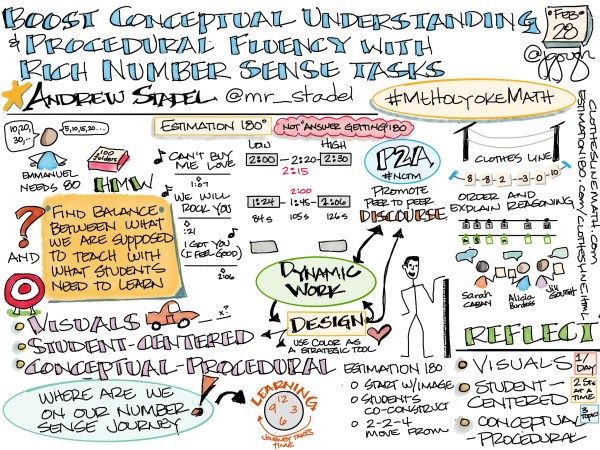 BOOST CONCEPTUAL UNDERSTANDING
& PROCEDURAL FLUENCY WITH
RICH NUMBER SENSE TASKS
FEB
28
@jgough
ANDREW STADEL @mr_stadel
#MtHolyokeMath
CLOTHESLINEMATH.COM
ESTIMATION180.COM/CLOTHESLINE.HTML
10,20,
30,...
5,10,15,20...
EMMANUEL
NEEDS 80
100
folders
HMW
?
AND
FIND BALANCE
BETWEEN WHAT
WE ARE SUPPOSED
TO TEACH WITH
WHAT STUDENTS
NEED TO LEARN
ESTIMATION 180°
NOT "ANSWER GETTING" 180
CAN'T BUY
ME LOVE
WE WILL
ROCK YOU
I GOT YOU
(I FEEL GOOD)
2:06
LOW HIGH
2:00 2:20 2:30
2:15
2:00
1:24 1:45 2:06
84 s 105 s 126 s
P2A
#NCTM
PROMOTE
PEER TO PEER
DISCOURSE
CLOTHES LINE
8 -8 2 -3 0 10
ORDER AND
EXPLAIN REASONING
Sarah
CABAN
Alicia
Burdess
Jill
GOUGH
DYNAMIC
WORK
DESIGN
USE COLOR AS
A STRATEGIC TOOL
VISUALS
x?
STUDENT-CENTERED
CONCEPTUAL-PROCEDURAL
WHERE ARE WE
ON OUR NUMBER
SENSE JOURNEY
!
LEARNING
12
9 3
6
JOURNEY TAKES
TIME
ESTIMATION 180
START W/IMAGE
STUDENTS
CO-CONSTRUCT
2-2-4
MOVE FROM
REFLECT
VISUALS 1/
DAY
STUDENT-
CENTERED
2 Sts
AT A
TIME
CONCEPTUAL
-PROCEDURAL
3
TOPICS